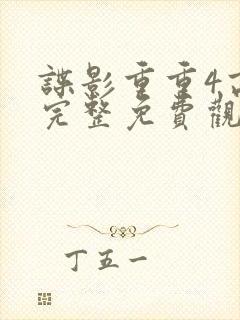 諜影重重4高
完整免費觀
丁五一